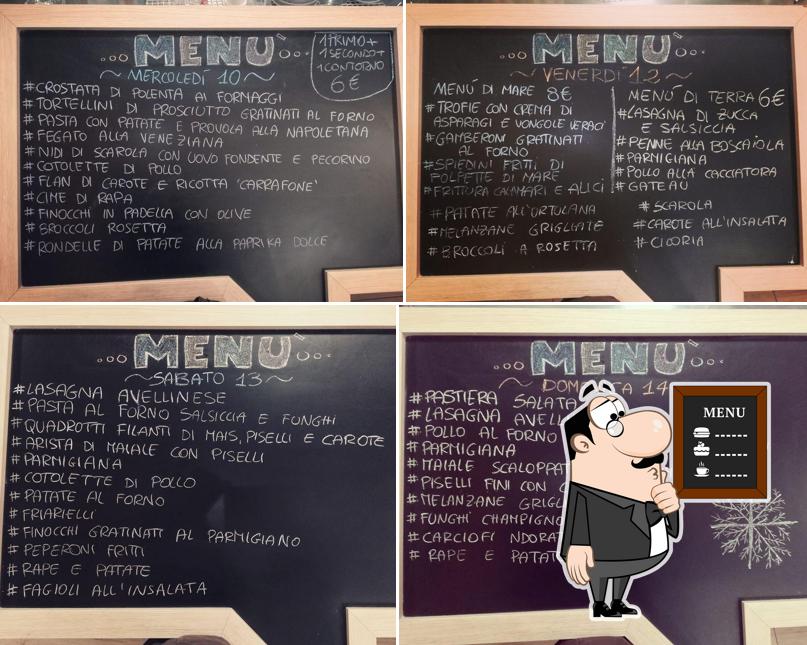 MENU'
1 PRIMO +
1 SECONDO +
1 CONTORNO
6€
MERCOLEDÍ 10
#CROSTATA DI POLENTA AI FORMAGGI
#TORTELLINI DI PROSCIUTTO GRATINATI AL FORNO
#PASTA CON PATATE E PROVOLA ALLA NAPOLETANA
#FEGATO ALLA VENEZIANA
#NIDI DI SCAROLA CON UOVO FONDENTE E PECORINO
#COTOLETTE DI POLLO
#FLAN DI CAROTE E RICOTTA 'CARRAFONE'
#CIME DI RAPA
#FINOCCHI IN PADELLA CON OLIVE
#BROCCOLI ROSETTA
#RONDELLE DI PATATE ALLA PAPRIKA DOLCE
MENU'
VENERDÍ 12
MENÚ DI MARE 8€
#TROFIE CON CREMA DI
ASPARAGI E VONGOLE VERACI
#GAMBERONI GRATINATI
AL FORNO
#SPIEDINI FRITTI DI
POLPETTE DI MARE
#FRITTURA CALAMARI E ALICI
#PATATE ALL'ORTOLANA
#MELANZANE GRIGLIATE
#BROCCOLI A ROSETTA
MENÚ DI TERRA 6€
#LASAGNA DI ZUCCA
E SALSICCIA
#PENNE ALLA BOSCAIOLA
#PARMIGIANA
#POLLO ALLA CACCIATORA
#GATEAU
#SCAROLA
#CAROTE ALL'INSALATA
#CICORIA
MENU'
SABATO 13
#LASAGNA AVELLINESE
#PASTA AL FORNO SALSICCIA E FUNGHI
#QUADROTTI FILANTI DI MAIS, PISELLI E CAROTE
#ARISTA DI MAIALE CON PISELLI
#PARMIGIANA
#COTOLETTE DI POLLO
#PATATE AL FORNO
#FRIARIELLI
#FINOCCHI GRATINATI AL PARMIGIANO
#PEPERONI FRITTI
#RAPE E PATATE
#FAGIOLI ALL'INSALATA
MENU'
14
#PASTIERA SALATA
#LASAGNA
#POLLO AL FORNO
#PARMIGIANA
#MAIALE
#PISELLI FINI CON
#MELANZANE
#FUNGHI
#CARCIOFI
#RAPE E
MENU